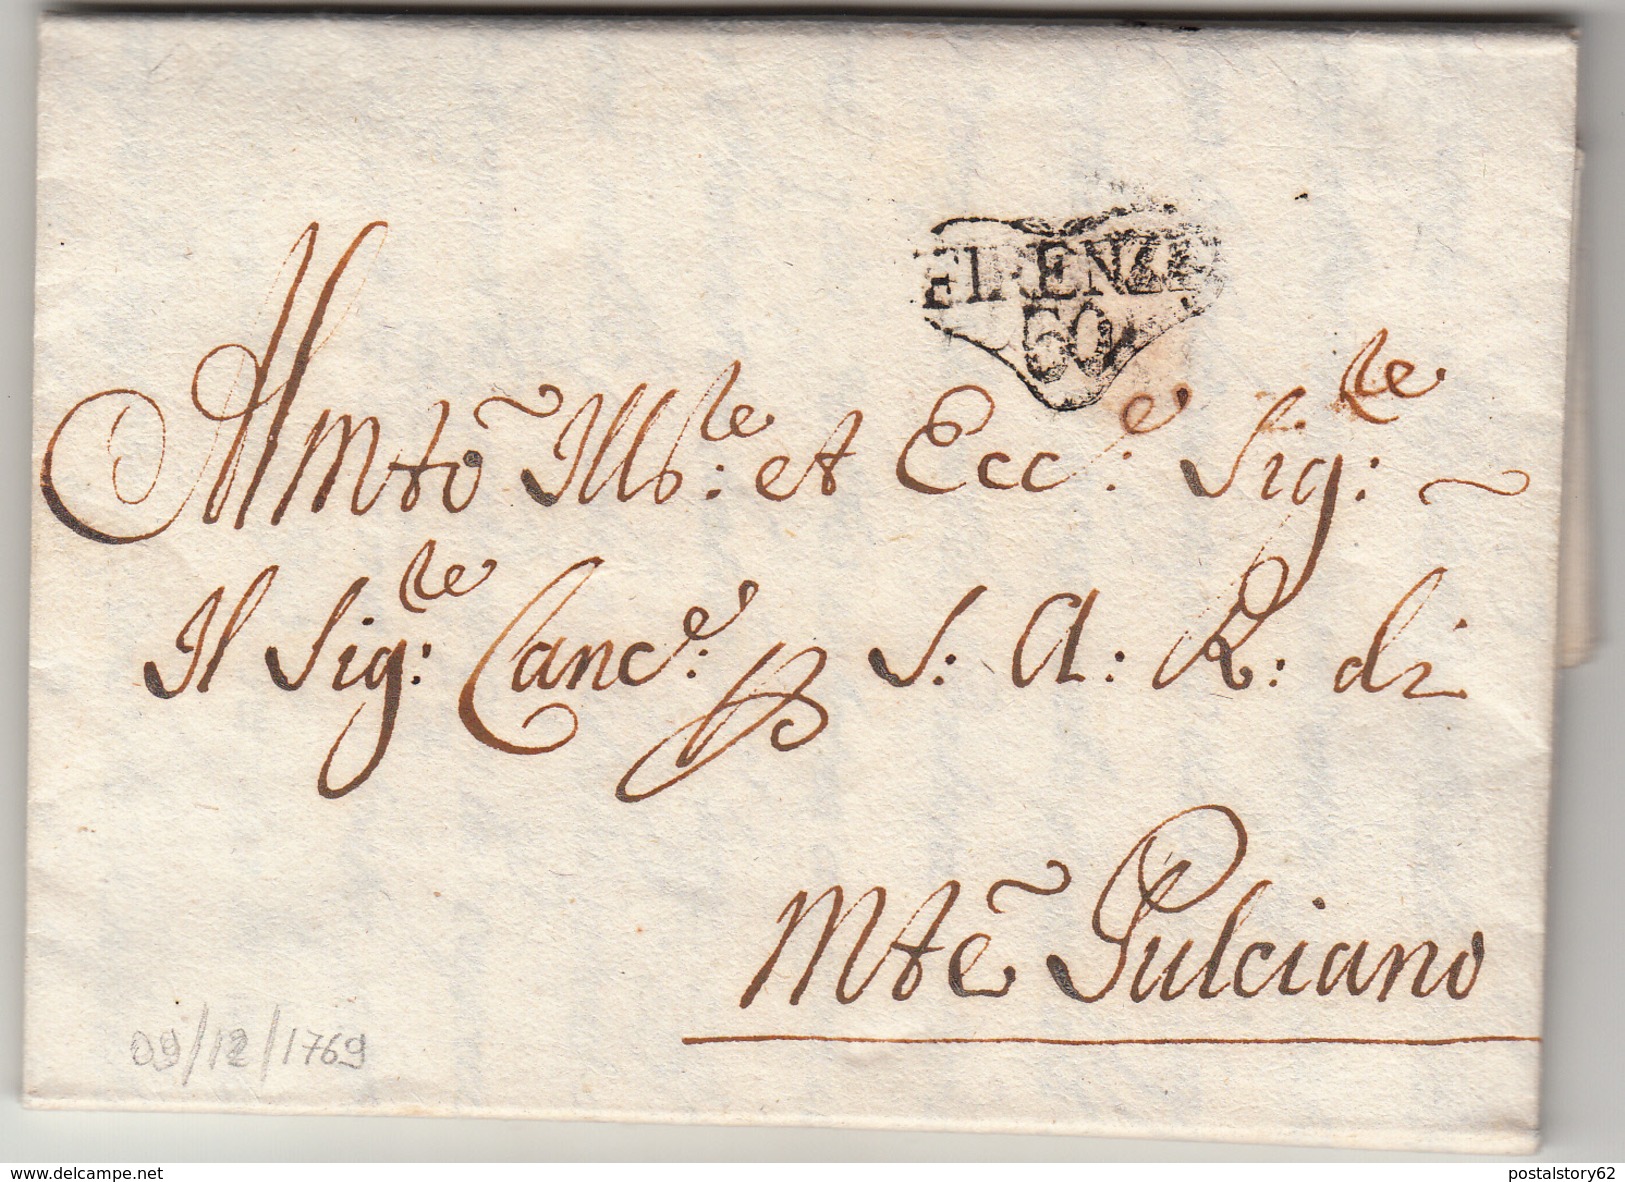 FIRENZE
60
All Mto Illre: et Ecc.e: Sigre: ~
Il Sigre: Canc.e: p S: A: R: di
Mte Pulciano
09/12/1769
www.delcampe.net
postalstory62